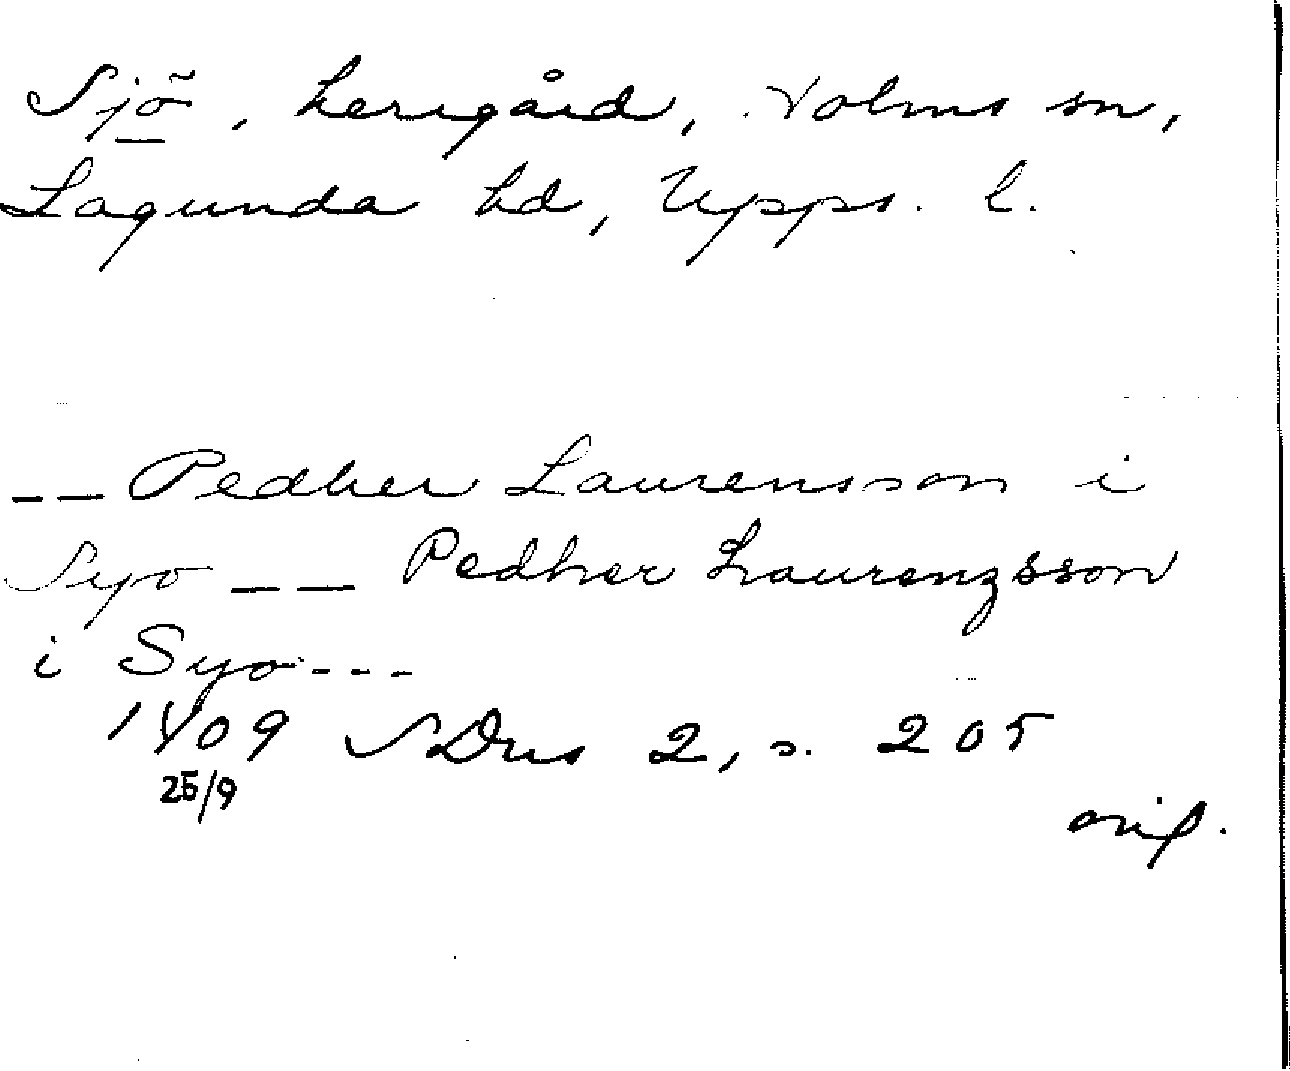 Sjö, herrgård, Holms sn,
Lagunda hd, Upps. l.
-- Pedher Laurensson i
Syo -- Pedher Laurenzsson
i Syo ---
1409 SDns 2, s. 205
25/9
orig.